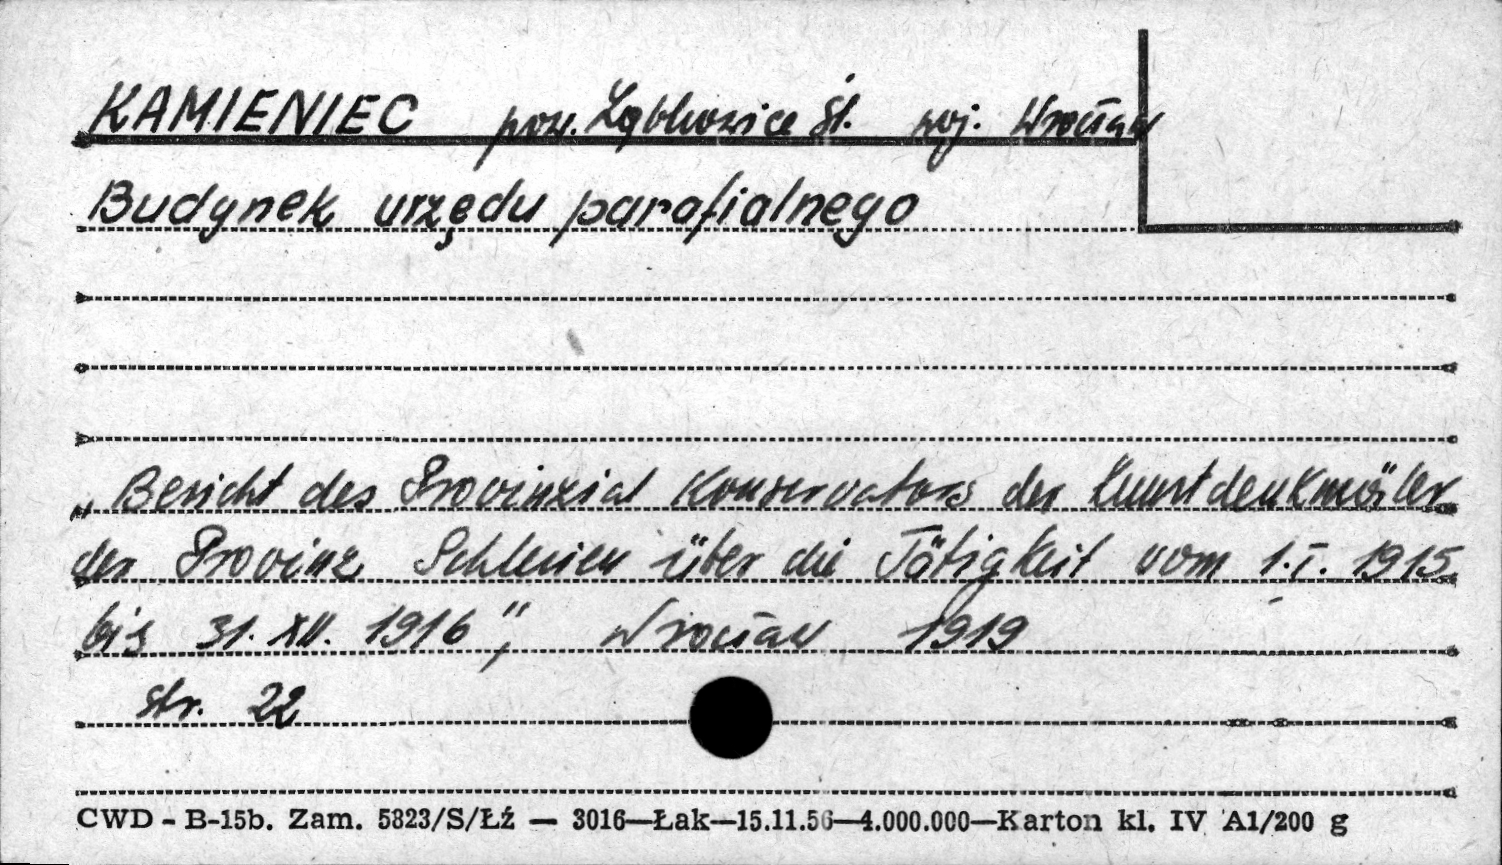 KAMIENIEC pow. Ząbkowice Śl. woj. Wrocław
Budynek urzędu parafialnego
„Bericht des Provinzial Konservators der Kunstdenkmäler
der Provinz Schlesien über die Tätigkeit vom 1.I. 1915
bis 31.XII. 1916", Wrocław 1919
str. 22
CWD - B-15b. Zam. 5823/S/Łź — 3016—Łak—15.11.56—4.000.000—Karton kl. IV A1/200 g